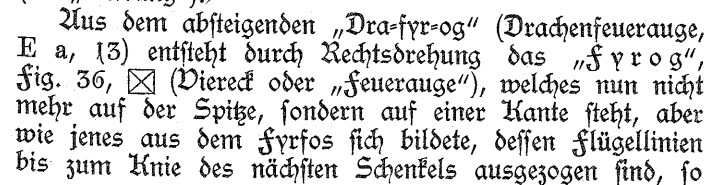 Aus dem absteigenden „Dra-fyr-og“ (Drachenfeuerauge,
E a, 13) entsteht durch Rechtsdrehung das „Fyrog“,
Fig. 36, (Viereck oder „Feuerauge“), welches nun nicht
mehr auf der Spitze, sondern auf einer Kante steht, aber
wie jenes aus dem Fyrfos sich bildete, dessen Flügellinien
bis zum Knie des nächsten Schenkels ausgezogen sind, so